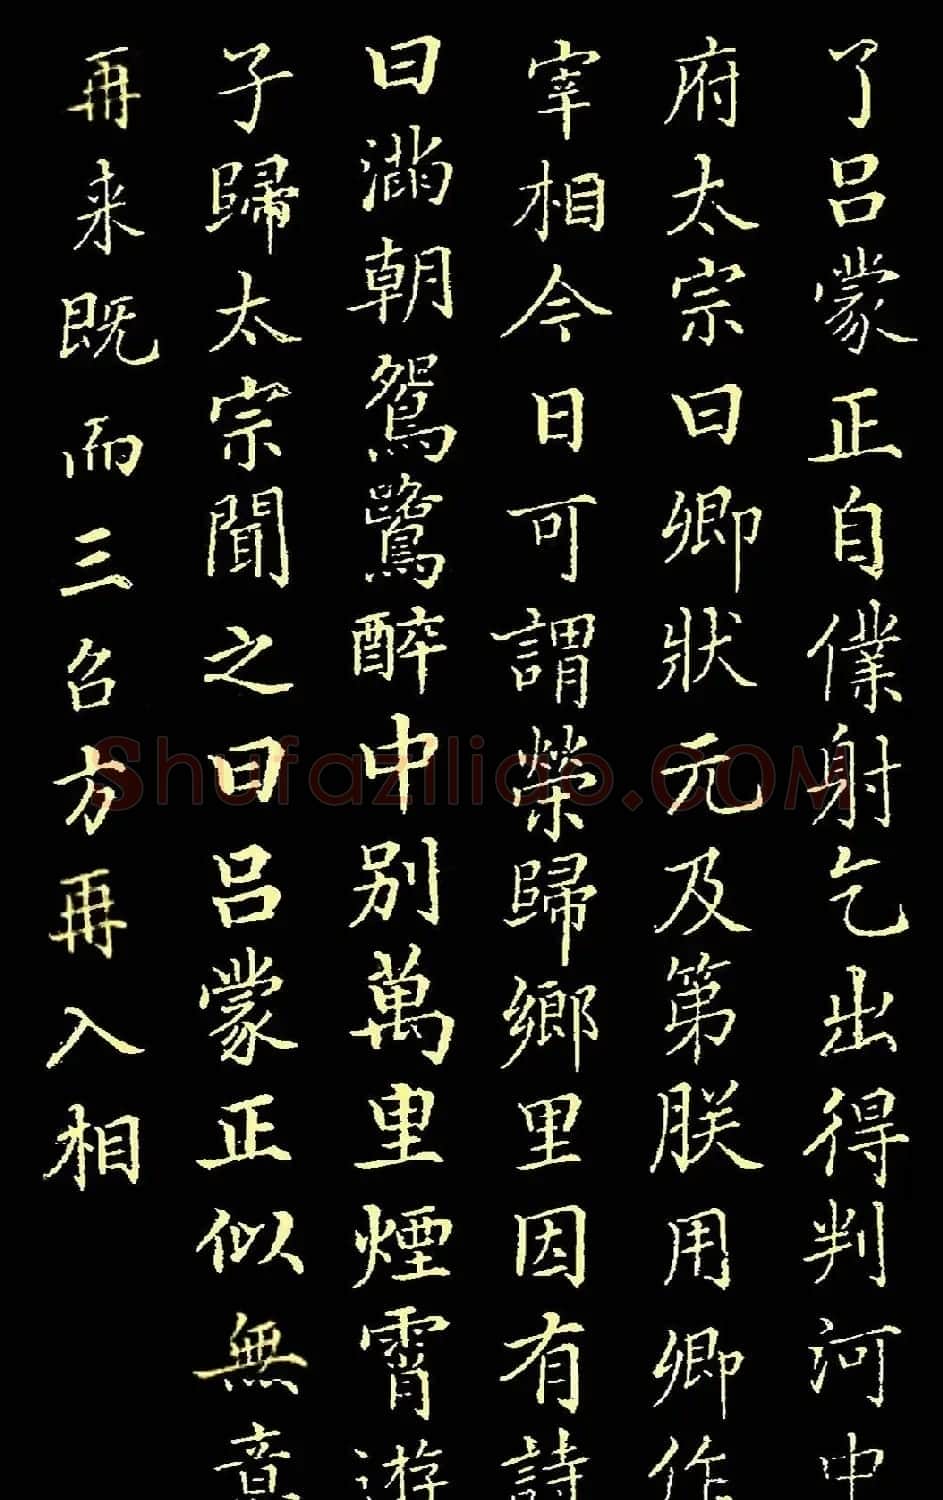 了呂蒙正自僕射乞出得判河中
府太宗曰卿狀元及第朕用卿作
宰相今日可謂榮歸鄉里因有詩
曰滿朝鴛鷺醉中別萬里煙霄遊
子歸太宗聞之曰呂蒙正似無意
再来既而三召方再入相
Shufaziliao.COM